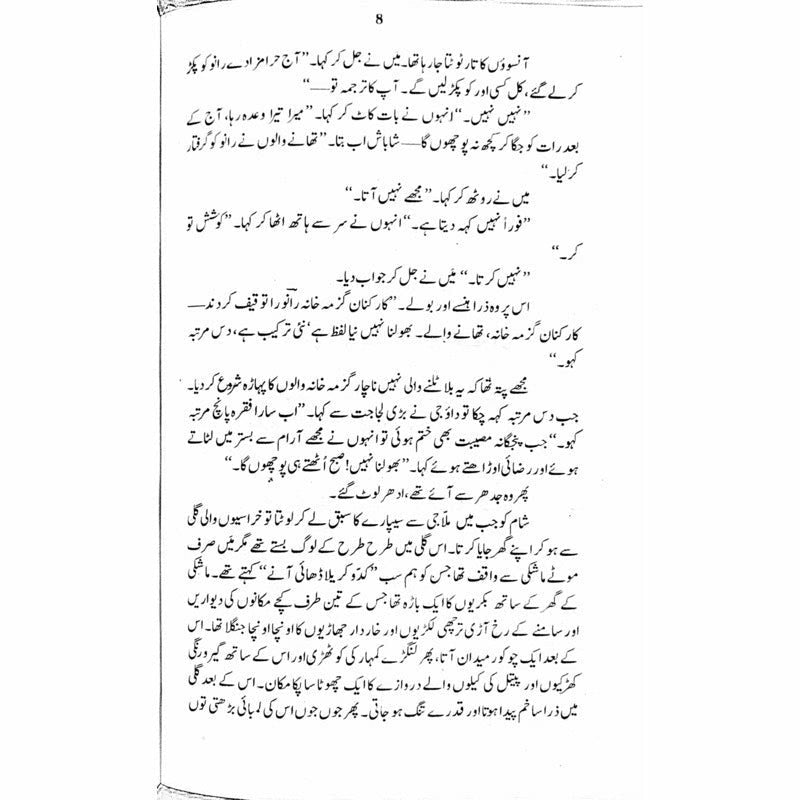 8
آنسوؤں کا تار ٹوٹتا جا رہا تھا۔ میں نے جل کر کہا۔ ”آج حرامزادے رانو کو پکڑ
کر لے گئے، کل کسی اور کو پکڑ لیں گے۔ آپ کا ترجمہ تو——“
”نہیں نہیں۔“ انہوں نے بات کاٹ کر کہا۔ ”میرا تیرا وعدہ رہا، آج کے
بعد رات کو جگا کر کچھ نہ پوچھوں گا—— شاباش اب بتا۔ ”تھانے والوں نے رانو کو گرفتار
کر لیا۔“
میں نے روٹھ کر کہا۔ ”مجھے نہیں آتا۔“
”فوراً نہیں کہہ دیتا ہے۔“ انہوں نے سر سے ہاتھ اٹھا کر کہا۔ ”کوشش تو
کر۔“
”نہیں کرتا۔“ میں نے جل کر جواب دیا۔
اس پر وہ ذرا ہنسے اور بولے۔ ”کارکنان گزمہ خانہ رانو را توقیف کردند——
کارکنان گزمہ خانہ، تھانے والے۔ بھولنا نہیں نیا لفظ ہے، نئی ترکیب ہے، دس مرتبہ
کہو۔“
مجھے پتہ تھا کہ یہ بلا ٹلنے والی نہیں ناچار گزمہ خانہ والوں کا پہاڑہ شروع کر دیا۔
جب دس مرتبہ کہہ چکا تو داؤ جی نے بڑی لجاجت سے کہا۔ ”اب سارا فقرہ پانچ مرتبہ
کہو۔“ جب پنجگانہ مصیبت بھی ختم ہوئی تو انہوں نے مجھے آرام سے بستر میں لٹاتے
ہوئے اور رضائی اوڑھاتے ہوئے کہا۔ ”بھولنا نہیں! صبح اُٹھتے ہی پوچھوں گا۔“
پھر وہ جدھر سے آئے تھے، ادھر لوٹ گئے۔
شام کو جب میں ملا جی سے سیپارے کا سبق لے کر لوٹتا تو خراسیوں والی گلی
سے ہو کر اپنے گھر جایا کرتا۔ اس گلی میں طرح طرح کے لوگ بستے تھے مگر میں صرف
موٹے ماشکی سے واقف تھا جس کو ہم سب ”کدّو کریلا ڈھائی آنے“ کہتے تھے۔ ماشکی
کے گھر کے ساتھ بکریوں کا ایک باڑہ تھا جس کے تین طرف کچے مکانوں کی دیواریں
اور سامنے کے رخ آڑی ترچھی لکڑیوں اور خاردار جھاڑیوں کا اونچا اونچا جنگلا تھا۔ اس
کے بعد ایک چوکور میدان آتا، پھر لنگڑے کمہار کی کوٹھڑی اور اس کے ساتھ گیرو رنگی
کھڑکیوں اور پیتل کی کیلوں والے دروازے کا ایک چھوٹا سا پکا مکان۔ اس کے بعد گلی
میں ذرا سا خم پیدا ہوتا اور قدرے تنگ ہو جاتی۔ پھر جوں جوں اس کی لمبائی بڑھتی توں